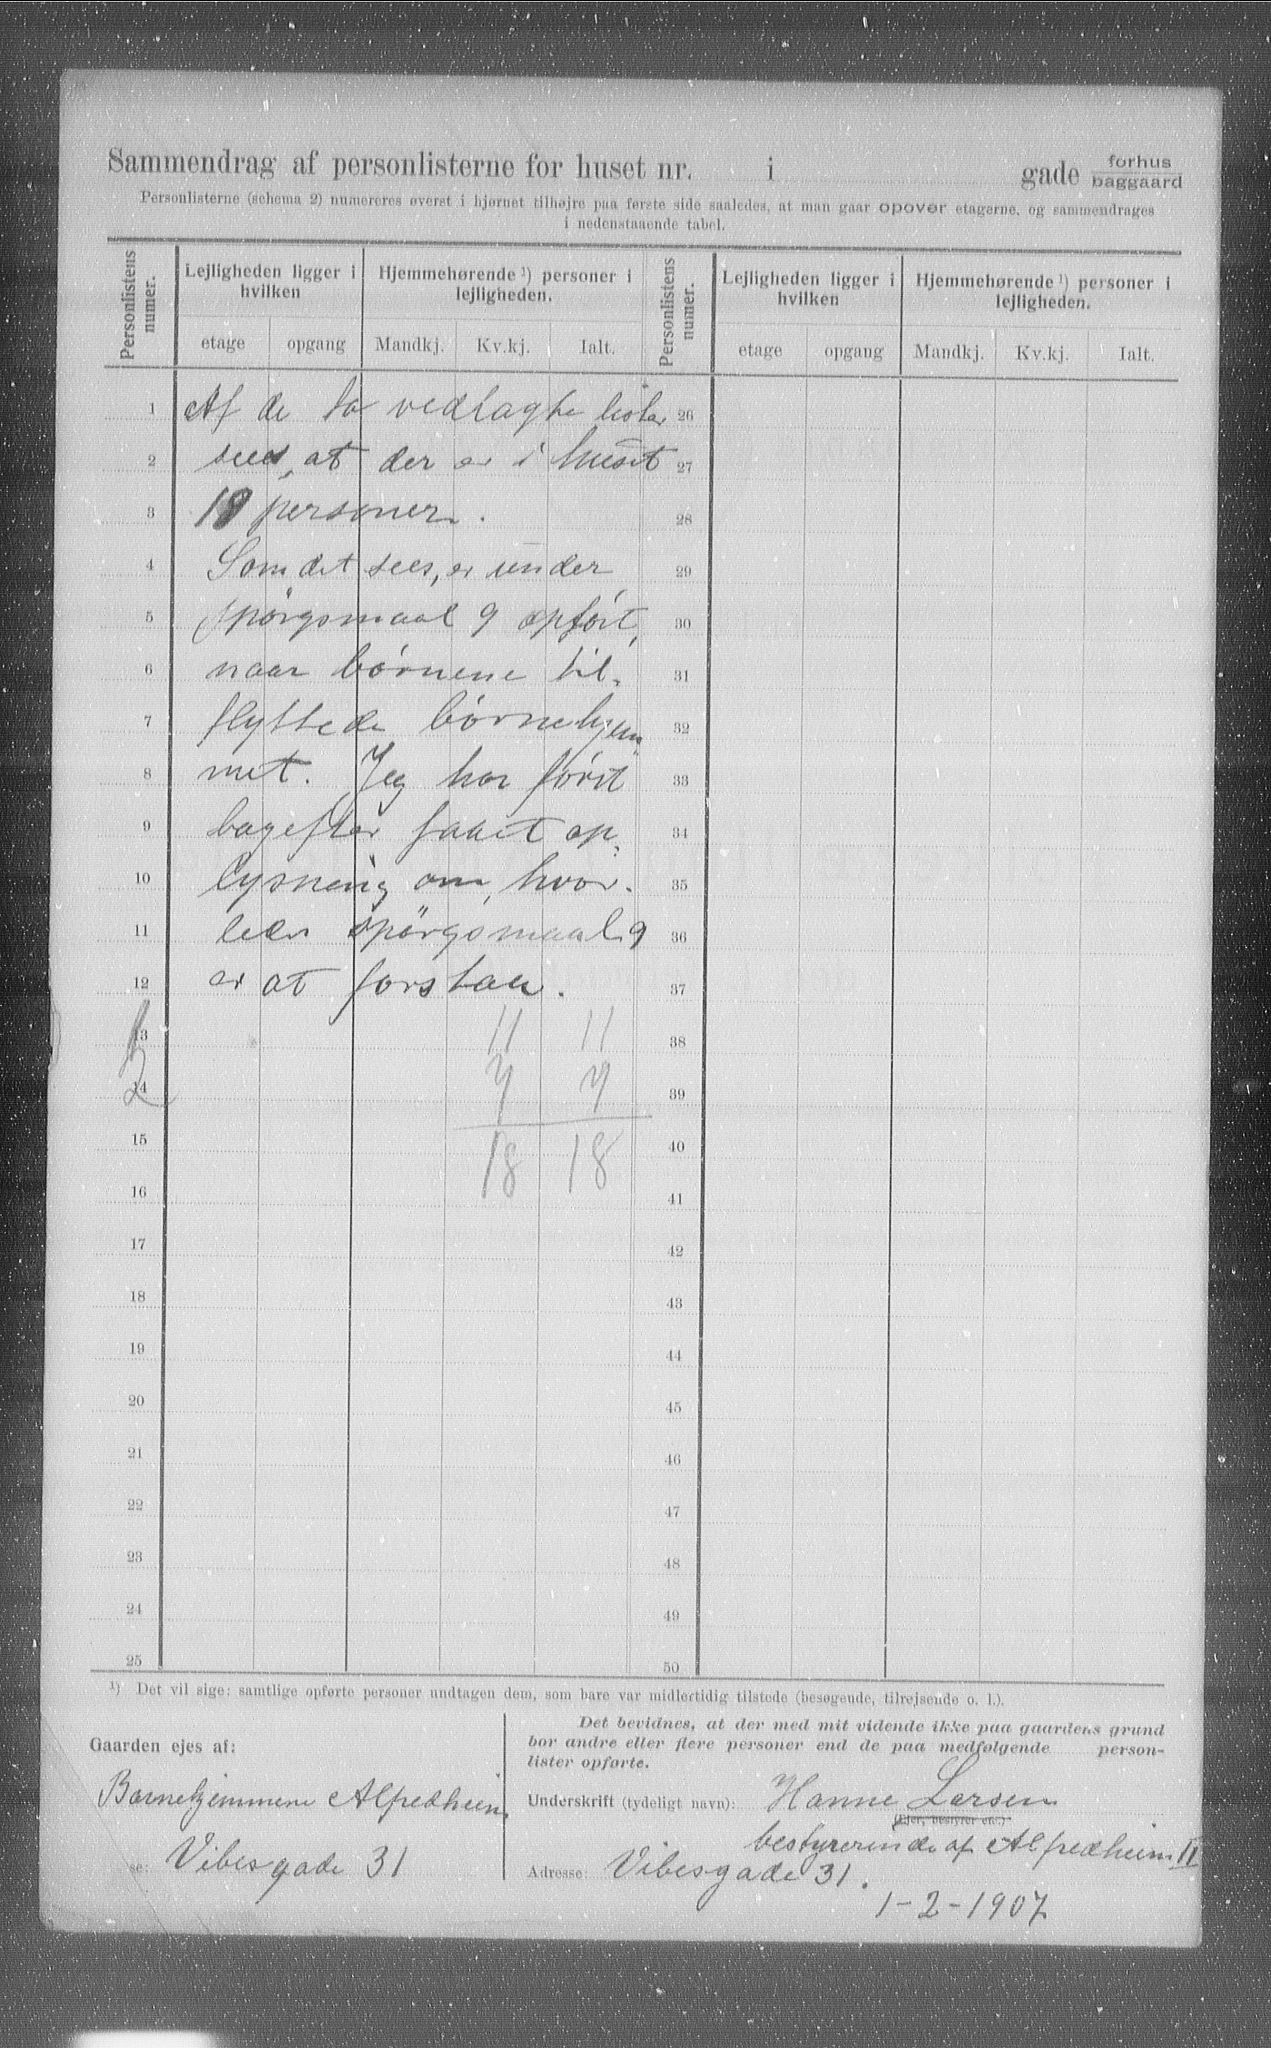 Sammendrag af personlisterne for huset nr. i gade forhus baggaard
Personlisterne (schema 2) numereres øverst i hjørnet tilhøjre paa første side saaledes, at man gaar opover etagerne, og sammendrages
i nedenstaaende tabel.
Personlistens numer. Lejligheden ligger i hvilken Hjemmehørende ¹) personer i lejligheden. Personlistens numer. Lejligheden ligger i hvilken Hjemmehørende ¹) personer i lejligheden.
etage opgang Mandkj. Kv.kj. Ialt. etage opgang Mandkj. Kv.kj. Ialt.
1 Af de to vedlagte lister 26
2 sees, at der er i huset 27
3 18 personer. 28
4 Som det sees, er under 29
5 spørgsmaal 9 opført, 30
6 naar børnene til- 31
7 flyttede børnehjem- 32
8 met. Jeg har først 33
9 bagefter faaet op- 34
10 lysning om, hvor- 35
11 ledes spørgsmaal 9 36
12 er at forstaa. 37
13 11 11 38
14 7 7 39
15 18 18 40
16 41
17 42
18 43
19 44
20 45
21 46
22 47
23 48
24 49
25 50
¹) Det vil sige: samtlige opførte personer undtagen dem, som bare var midlertidig tilstede (besøgende, tilrejsende o. l.).
Gaarden ejes af:
Barnehjemmene Alfredheim
se: Vibesgade 31
Det bevidnes, at der med mit vidende ikke paa gaardens grund
bor andre eller flere personer end de paa medfølgende person-
lister opførte.
Underskrift (tydeligt navn): Hanne Larsen
(Ejer, bestyrer etc.)
bestyrerinde af Alfredheim II
Adresse: Vibesgade 31.
1-2-1907